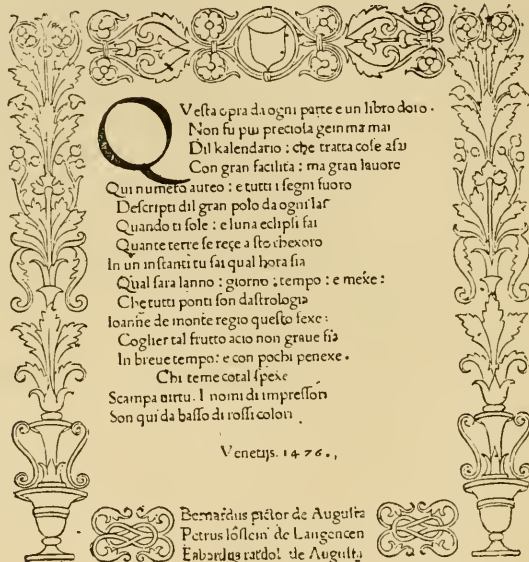 QVesta opra da ogni parte e un libro doro.
Non fu piu preciosa gemma mai
Dil kalendario: che tratta cose asai
Con gran facilita: ma gran lauoro
Qui numero aureo: e tutti i segni fuoro
Descripti dil gran polo da ogni lai
Quando ti sole: e luna eclipsi fai
Quante terre se reçe a sto thexoro
In un instanti tu sai qual hora sia
Qual sara lanno: giorno: tempo: e mexe:
Che tutti ponti son dastrologia
Ioanne de monte regio questo fexe:
Coglier tal frutto acio non graue sia
In breue tempo: e con pochi penexe.
Chi teme cotal spexe
Scampa uirtu. I nomi di impressori
Son qui da basso di rossi colori
Venetijs. 1476.,
Bernardus pictor de Augusta
Petrus löslein de Langencen
Erhardus ratdolt de Augusta